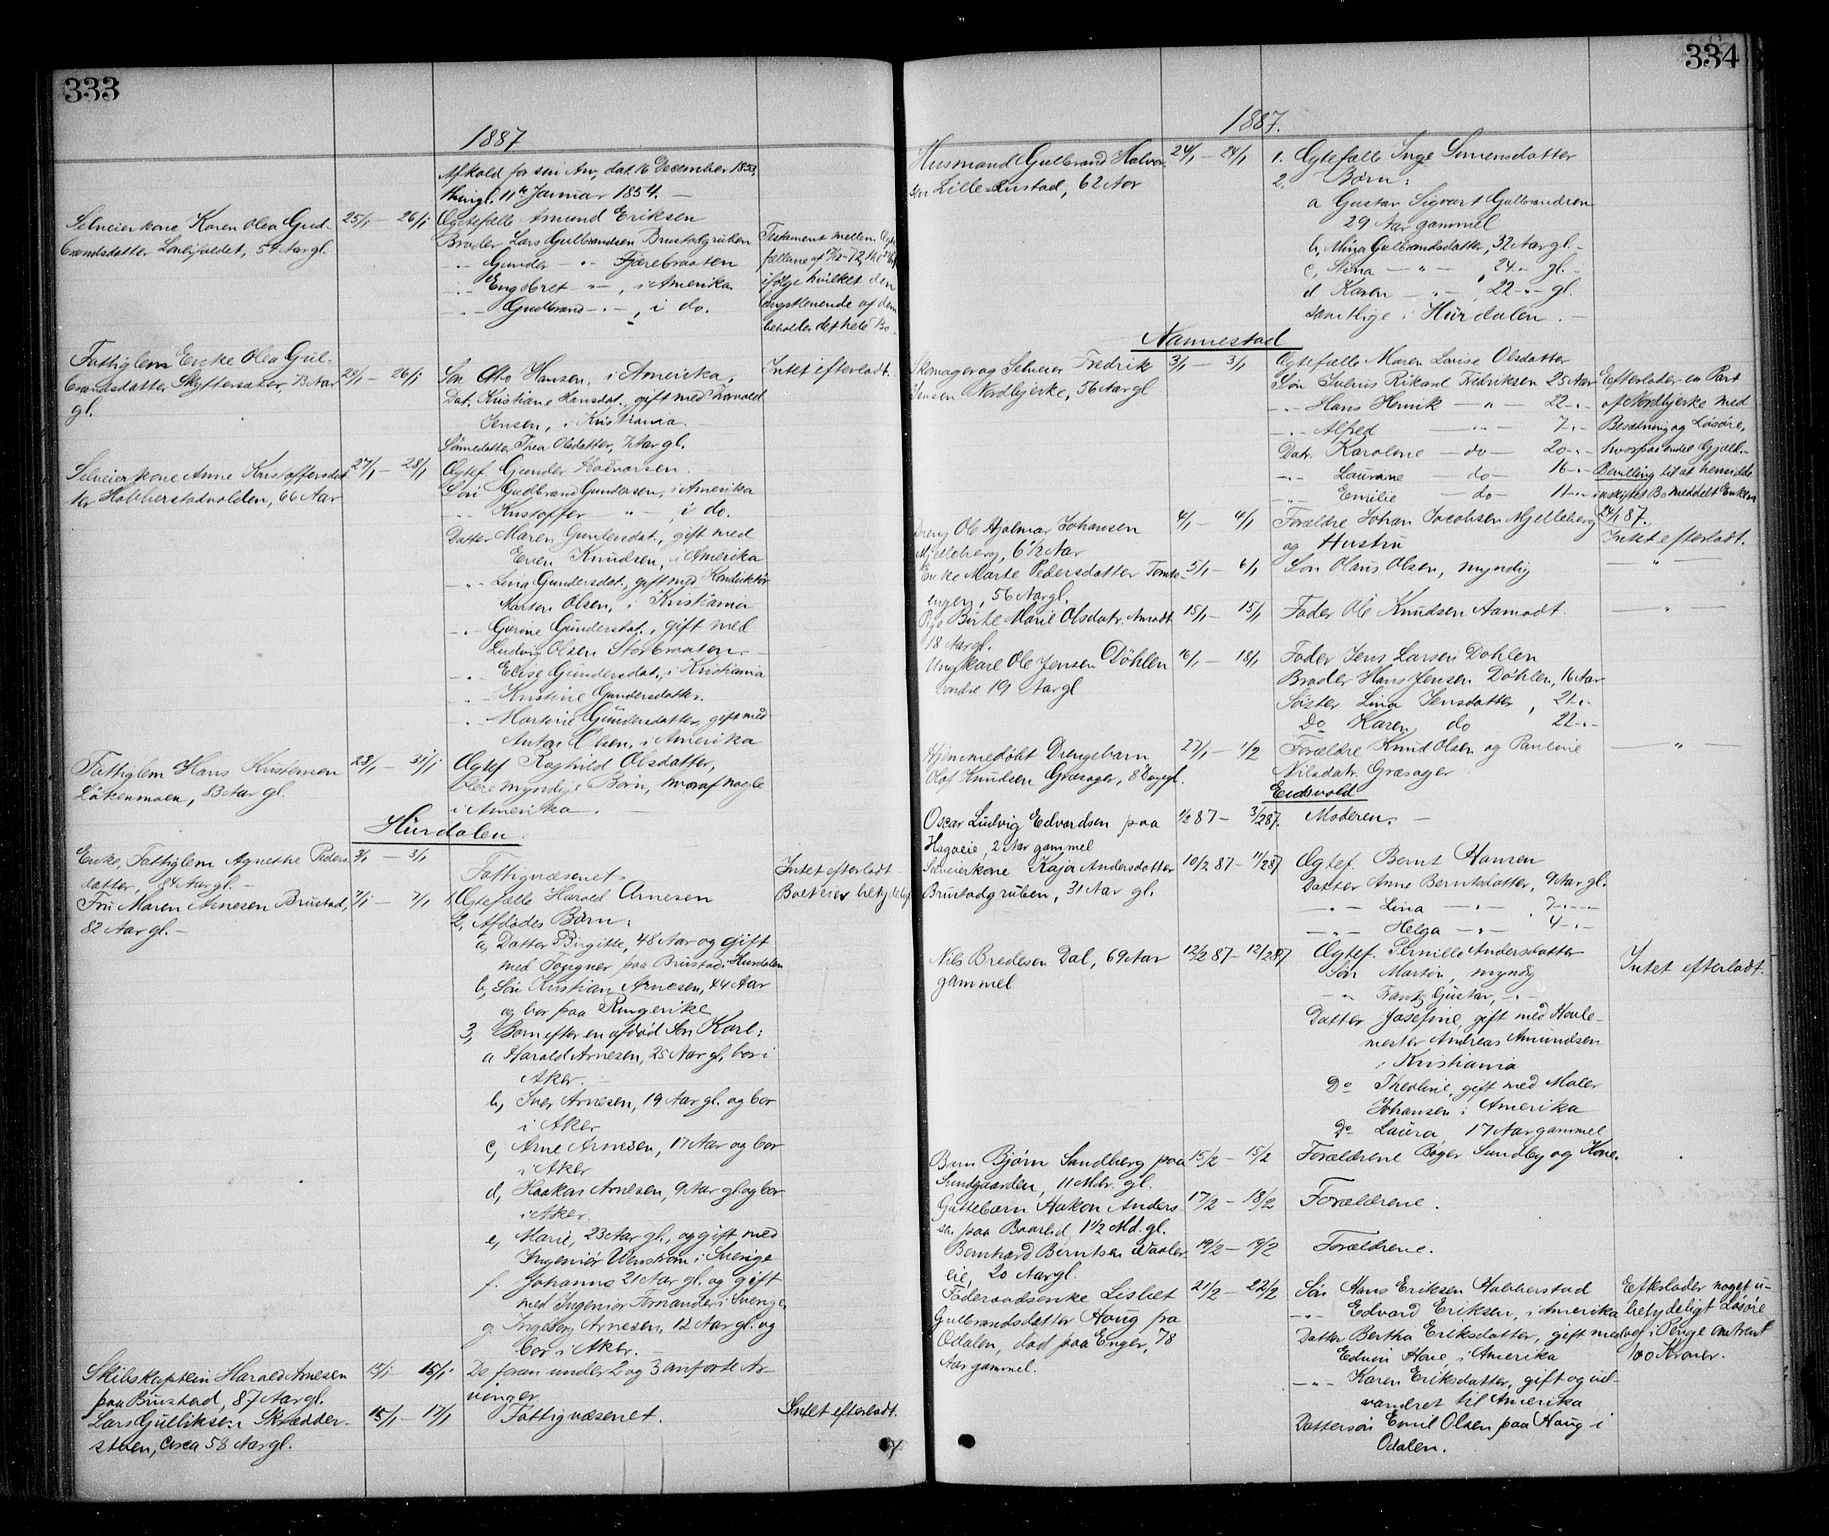 333
1887
Afkald for sin Arv, dat. 16 December 1853,
thingl. 11te Januar 1854. —
Selveierkone Karen Olea Gud-
brandsdatter, 54 Aar gl.
25/1 — 26/1
Ægtefælle Amund Eriksen
Broder Lars Gulbrandsen Brustadgruben
-"- Gunder -"- Fjærebraaten
-"- Engebret -"-, i Amerika
-"- Gudbrand -"-, i do.
Testament mellem Ægte-
fællerne af
ifølge hvilket den
længstlevende af dem
beholder det hele Bo.
Fattiglem Enke Olea Gul-
brandsdatter Skyttersæter, 73 Aar
gl.
24/1 — 26/1
Søn Otto Hansen, i Amerika,
Dat. Kristiane Hansdat., gift med Thorvald
Jensen, i Kristiania.
Sønnedatter Thea Olsdatter, 7 Aar gl.
Intet efterladt.
Selveierkone Anne Kristoffersdat-
ter Habberstadvolden, 66 Aar
27/1 — 28/1
Ægtef. Gunder Halvorsen.
Søn Gudbrand Gundersen, i Amerika
-"- Kristoffer -"-, i do.
Datter Maren Gundersdat., gift med
Even Knudsen, i Amerika
-"- Lina Gundersdat., gift med Konduktør
Morten Olsen, i Kristiania
-"- Gurine Gundersdat., gift med
Ludvig Olsen Storbraaten
-"- Elise Gundersdat., i Kristiania
-"- Kristine Gundersdatter.
-"- Martine Gundersdatter, gift med
Anton Olsen, i Amerika
Fattiglem Hans Kristensen
Løkenmoen, 83 Aar gl.
28/1 — 31/1
Ægtef. Ragnhild Olsdatter,
flere myndige Børn, hvoraf nogle
i Amerika.
Hurdalen.
Enke, Fattiglem Agnethe Peders-
datter, 84 Aar gl. —
3/1 — 3/1
Fattigvæsenet
Intet efterladt
Fru Maren Arnesen Brustad,
82 Aar gl. —
7/1 — 7/1
1, Ægtefælle Harald Arnesen
Boet eier betydelig
2, Afdødes Børn:
a, Datter Birgitte, 48 Aar og gift
med Fougner paa Brustad i Hurdalen
b, Søn Kristian Arnesen, 44 Aar
og bor paa Ringerike
3, Børn efter en afdød Søn Karl:
a Harald Arnesen, 25 Aar gl, bor i
Aker. —
b, Iver Arnesen, 19 Aar gl. og bor
i Aker
c, Arne Arnesen, 17 Aar og bor
i Aker
d, Haakon Arnesen, 9 Aar gl. og bor
i Aker.
e, Marie, 23 Aar gl., og gift med
Ingeniør Wenstrøm i Sverige
f. Johanne 21 Aar gl. og gift
med Ingeniør Fernander i Sverige
g. Ingeborg Arnesen, 12 Aar gl. og
bor i Aker. —
Skibskaptein Harald Arnesen
paa Brustad, 87 Aar gl.
13/1 — 15/1
De foran under 2 og 3 anførte Ar-
vinger
Lars Gulliksen Skrædder-
stuen, circa 58 Aar gl.
15/1 — 17/1
Fattigvæsenet.
Intet efterladt.
334
1887.
Husmand Gulbrand Halvor-
sen Lille-Rustad, 62 Aar
24/1 — 24/1
1. Ægtefælle Inge Simensdatter
2, Børn:
a Gustav Sigvart Gulbrandsen
29 Aar gammel
b, Mina Gulbrandsdatter, 32 Aar gl. —
c, Stina -"-, 24 -"- gl. —
d, Karen -"-, 22 -"- gl.
samtlige i Hurdalen. —
Nannestad
Skomager og Selveier Fredrik
Jensen Nordbjerke, 56 Aar gl
3/1 — 3/1
Ægtefælle Maren Lovise Olsdatter
Søn Julius Rikard Fredriksen 25 Aar
-"- Hans Henrik -"- 22 -"-
-"- Alfred -"- 7 -"-
Datr. Karolene — do — 20 -"-
-"- Laurane — do — 16 -"-
-"- Emilie — do — 11 -"-
Efterlader en Part
af Nordbjerke med
Besætning og Løsøre,
hvorpaa endel Gjæld. —
Bevilling til at hensidde
i uskiftet Bo meddelt Enken
24/1 87.
Dreng Ole Hjalmar Johansen
Mjelleberg, 6 1/2 Aar
4/1 — 4/1
Forældre Johan Jacobsen Mjelleberg
og Hustru
Intet efterladt.
Enke Marte Pedersdatter Tomte-
enger, 56 Aar gl.
5/1 — 6/1
Søn Olaus Olsen, myndig
— " —
Pige Birte Marie Olsdatr. Amodt
18 Aar gl.
15/1 — 15/1
Fader Ole Knudsen Aamodt.
— " —
Ungkarl Ole Jensen Døhlen
søndre 19 Aar gl
16/1 — 18/1
Fader Jens Larsen Døhlen
Broder Hans Jensen Døhlen, 16 Aar
Søster Lina Jensdatter, 21 -"-
Do Karen do 22 -"-
Hjemmedøbt Drengebarn
Olaf Knudsen Græsager, 8 Dage gl.
27/1 — 1/2
Forældre Knud Olsen og Pauline
Nilsdatr. Græsager
— " —
Eidsvold
Oscar Ludvig Edvardsen paa
Hagaeie, 2 Aar gammel
1/2 87 — 3/2 87.
Moderen. —
Selveierkone Kaja Andersdatter
Brustadgruben, 31 Aar gl.
10/2 87 — 11/2 87
Ægtef. Bernt Hansen
Datter Anne Berntsdatter, 9 Aar gl.
-"- Lina -"-, 7 -"-
-"- Helga -"- 4 -"-
Nils Bredesen Dal, 69 Aar
gammel
12/2 87 — 12/2 87
Ægtef. Pernille Andersdatter
Søn Martin, myndig
-"- Frantz Gustav, -"-
Datter Josefine, gift med
mester Andreas Amundsen
i Kristiania
Do Theoline, gift med Maler
Johansen i Amerika
Do Laura 17 Aar gammel
Intet efterladt.
Barn Bjørn Sandberg paa
Sundgaarden, 11 Mdr. gl.
15/2 — 15/2
Forældrene Boger Sundby og Kone.
Guttebarn Hakon Anders-
sen paa Baarlid, 1 1/2 Md. gl.
17/2 — 18/2
Forældrene.
Bernhard Berntsen Waaler-
eie, 20 Aar gl.
19/2 — 19/2
Forældrene.
Føderaadsenke Lisbet
Gulbrandsdatter Houg fra
Odalen, død paa Enger, 78
Aar gammel.
21/2 — 22/2
Søn Hans Eriksen Habberstad
-"- Edvard Eriksen, i Amerika
Datter Bertha Eriksdatter, gift med
Edvin Hare, i Amerika
-"- Karen Eriksdatter, gift og ud-
vandret til Amerika
Dattersøn Emil Olsen paa Houg i
Odalen.
Efterlader noget u-
betydeligt Løsøre
og i Penge omtrent
100 Kroner.